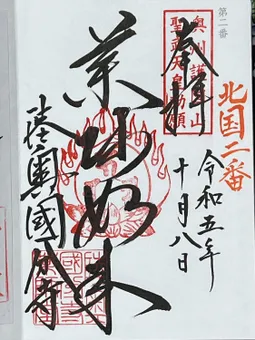 第二番
北国二番
令和五年
十月八日
奉拝
奥州護国山
聖武天皇勅願
薬师如来
陸奥國分寺